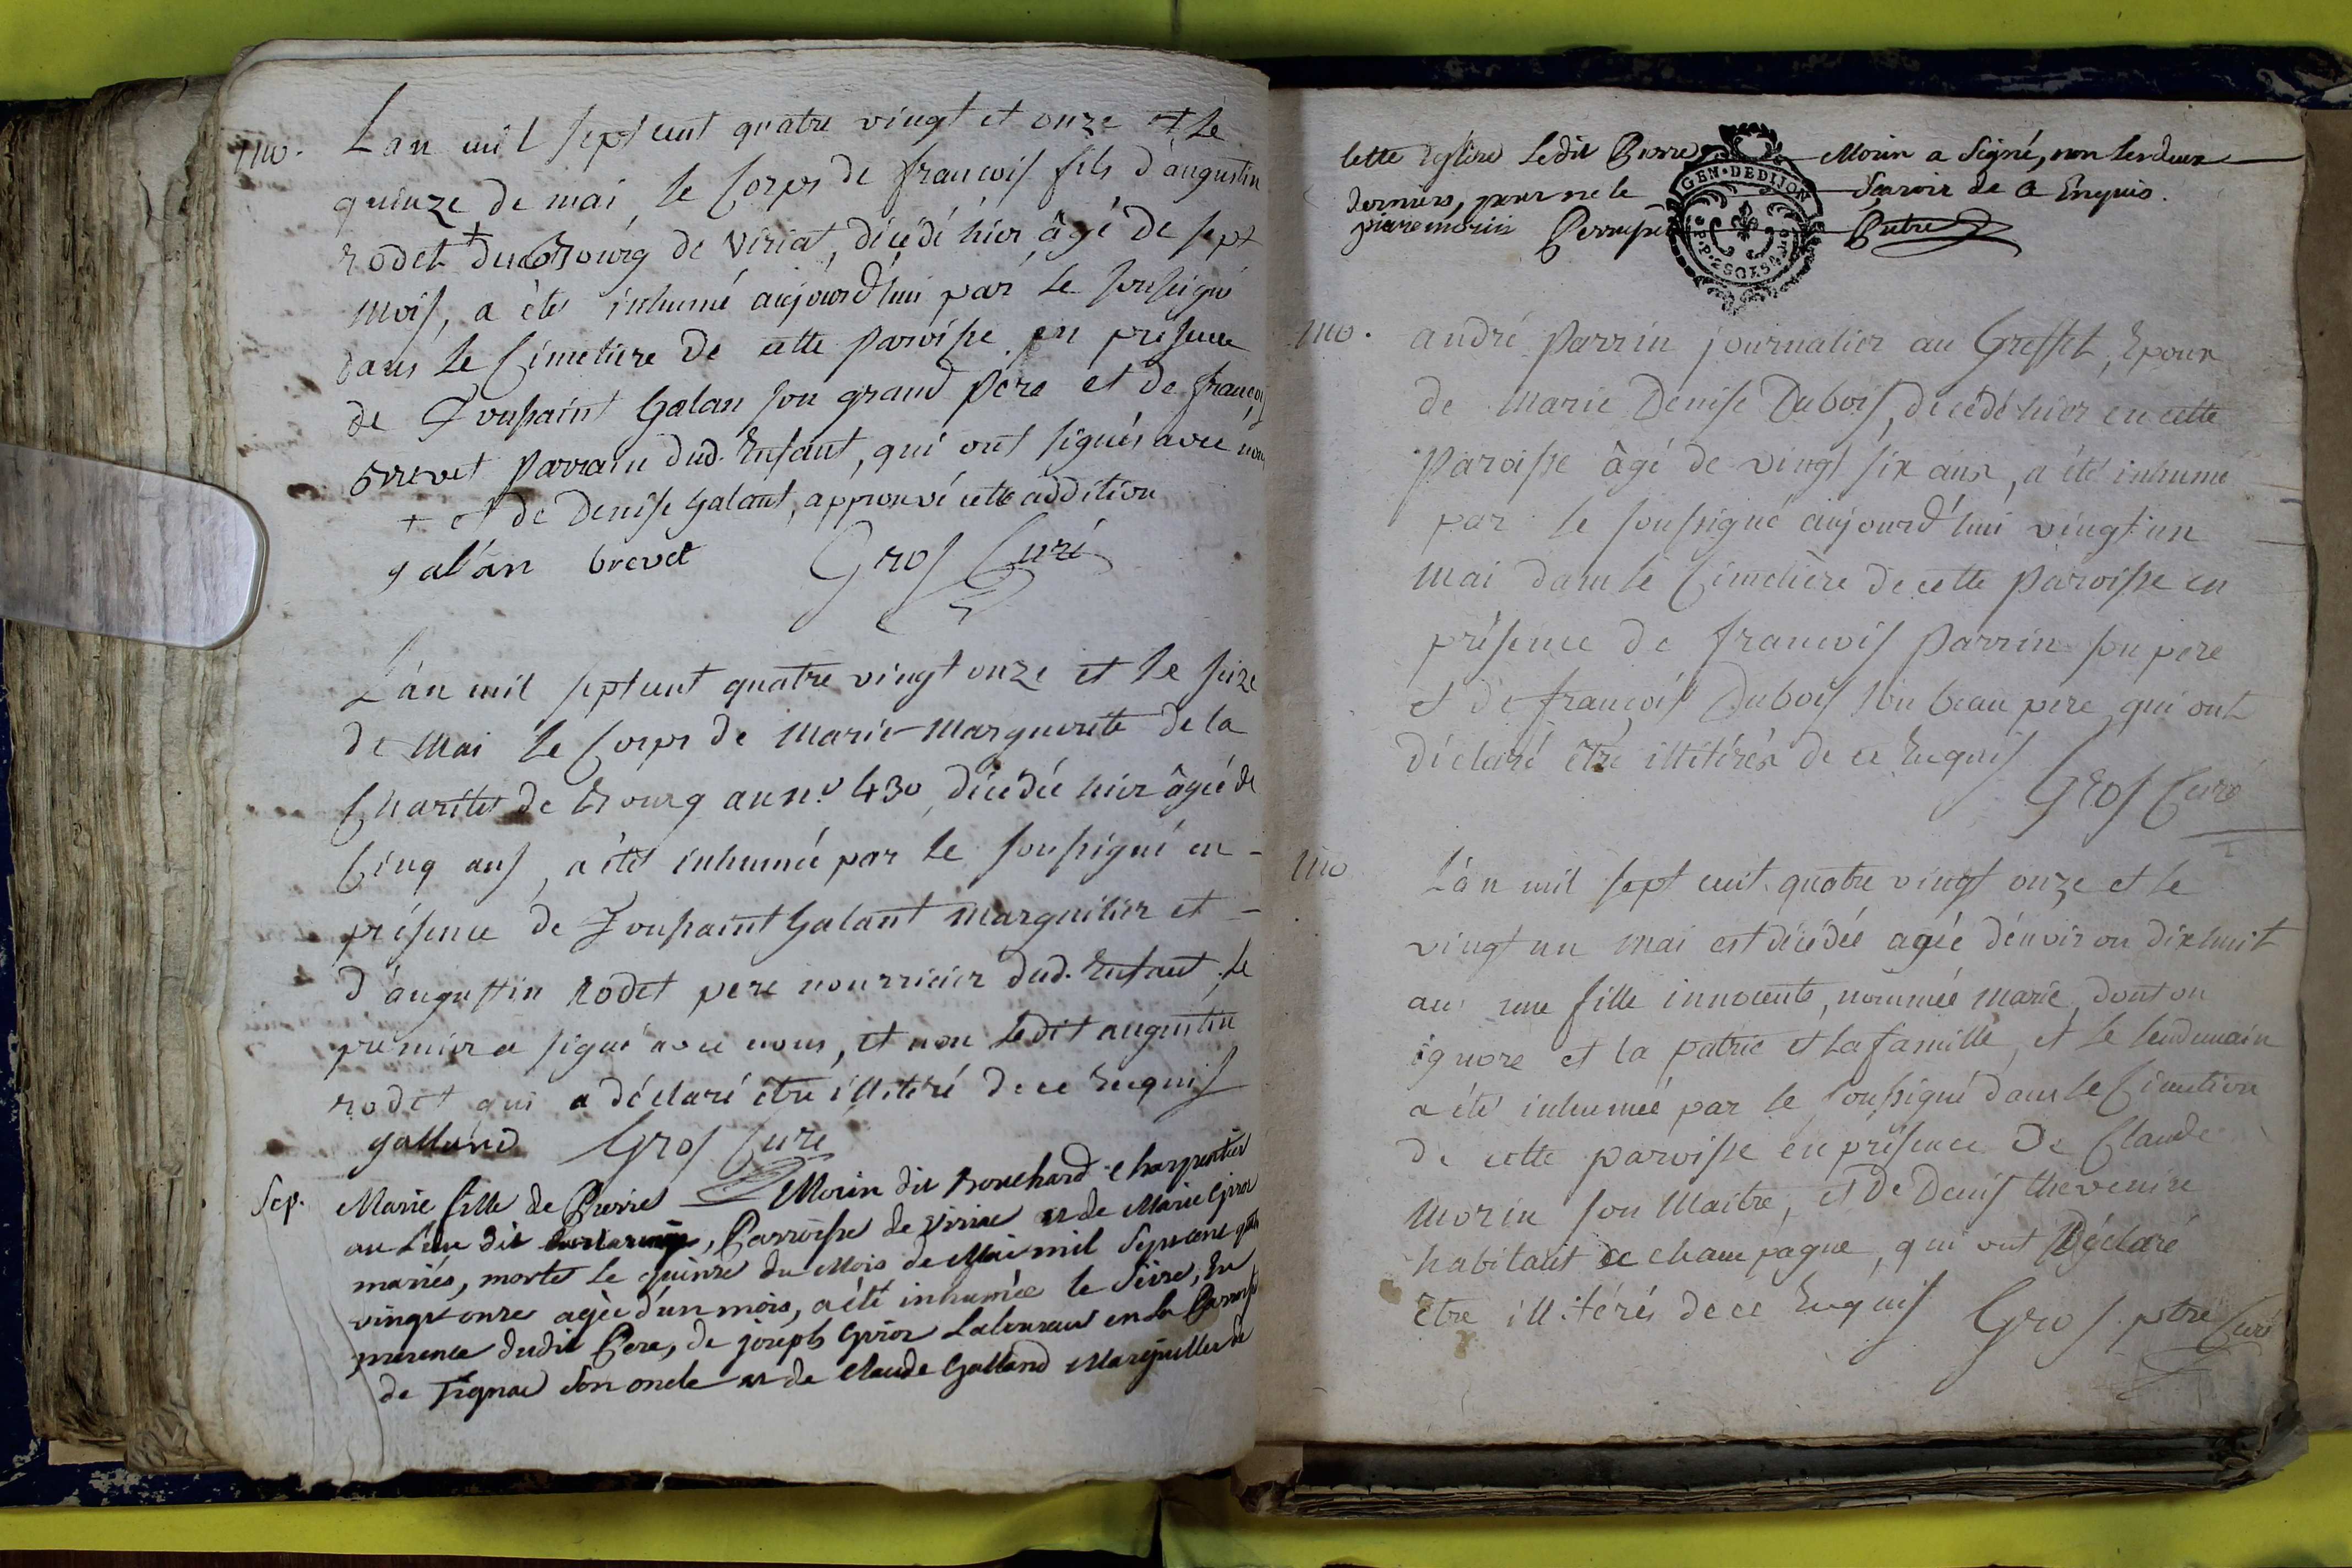 mo. L'an mil sept cent quatre vingt et onze et le
quinze de mai le Corps de francois fils d'augustin
rodet + du Bourg de Viriat, décédé hier âgé de sept
mois, a été inhumé aujourd'hui par le soussigné
dans le Cimetiere de cette paroisse en présence
de Toussaint Galan son grand Pere et de francois
Brevet parrain dud. Enfant, qui ont signés avec nous
+ et de Denise Galant, approuvé cette addition
galan brevet Gros Curé
L'an mil sept cent quatre vingt onze et le seize
de Mai le Corps de Marie-Marguerite de la
Charité de Bourg au n.o 430, décédée hier âgée de
Cinq ans, a été inhumée par le soussigné en -
présence de Toussaint Galant Marguilier et -
d'augustin rodet pere nourricier dud. Enfant, le
premier a signé avec nous, et non ledit augustin
rodet qui a déclaré être illitéré de ce Enquis
galland Gros Curé
Sep. Marie fille de Pierre Morin dit Bouchard charpentier
au Lieu dit, Parroisse de Viriac et de Marie Grior
mariés, morte le quinze du Mois de Mai mil Sept cent quatre
vingt onze agée d'un mois, a été inhumée le Seize, En
presence dudit Pere, de joseph Grior Laboureur en la Parroisse
de Tignac Son oncle et de Claude Galland Marguillier de
Cette Eglise Ledit Pierre Morin a Signé, non les deux
derniers, pour ne le Sçavoir de a Enquis.
pierre morin Prtre
GEN. DE DIJON
mo. andré parrin journalier au Gresset, Epoux
de Marie Denise Dubois, décédé hier en cette
Paroisse âgé de vingt six ans, a été inhumé
par le soussigné aujourd'hui vingt un
mai dans le Cimetière de cette Paroisse en
présence de francois parrin son pere
et de françois Dubois son beau pere qui ont
déclaré être illitérés de ce Enquis
Gros Curé
mo L'an mil sept cent quatre vingt onze et le
vingt un mai est décédée agée d'environ dix huit
ans une fille innocente, nommée marie, dont on
ignore et la patrie et la famille, et le lendemain
a été inhumée par le soussigné dans le Cimetiere
de cette paroisse en présence De Claude
Morin son Maitre, et De Denis thevenin
habitant de Champagne, qui ont Déclaré
Etre illitérés de ce Enquis Gros ptre Curé